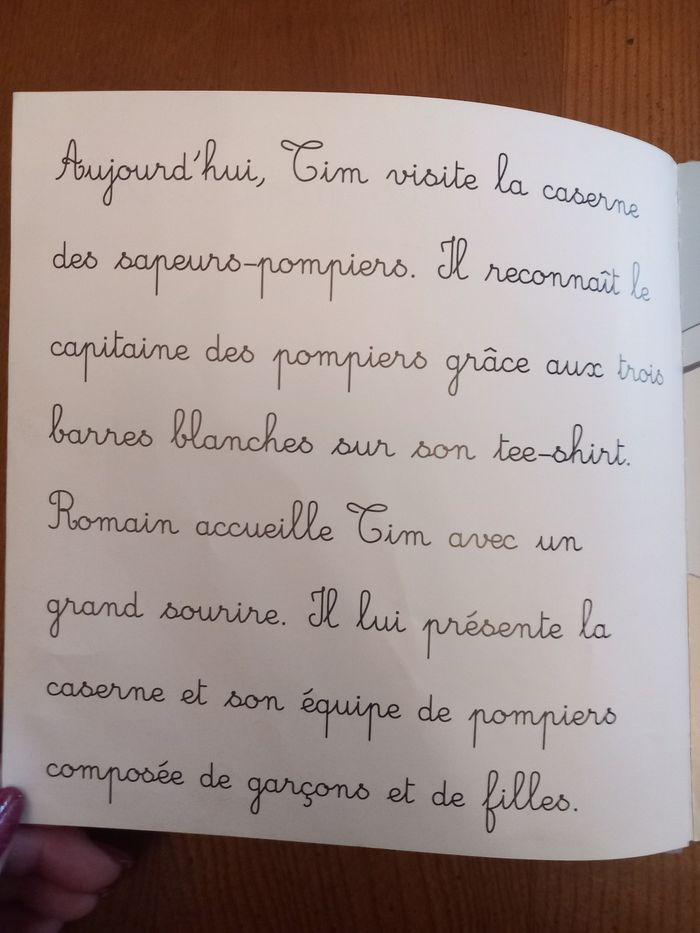 Aujourd'hui, Tim visite la caserne
des sapeurs-pompiers. Il reconnaît le
capitaine des pompiers grâce aux trois
barres blanches sur son tee-shirt.
Romain accueille Tim avec un
grand sourire. Il lui présente la
caserne et son équipe de pompiers
composée de garçons et de filles.